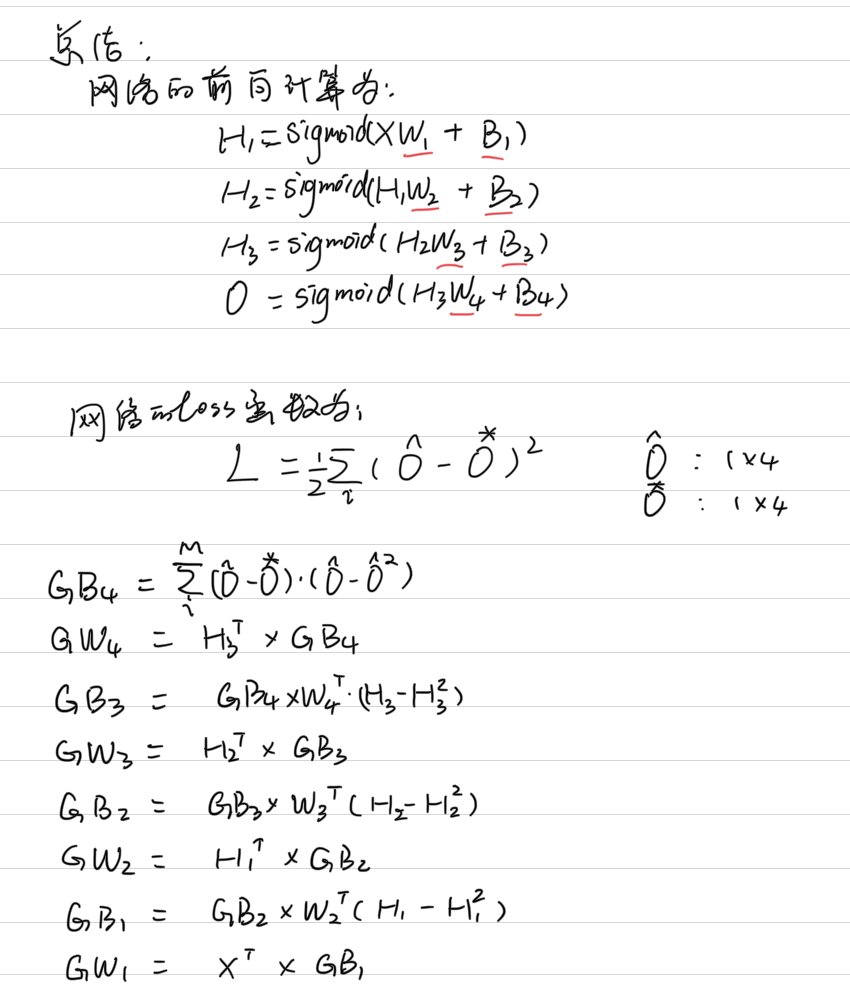 总结:
网络的前向计算为:
H₁=sigmoid(XW₁ + B₁)
H₂=sigmoid(H₁W₂ + B₂)
H₃=sigmoid(H₂W₃+B₃)
O =sigmoid(H₃W₄+B₄)
网络的Loss函数为:
L = 1/2 Σ_i (Ô - O^*)² Ô : 1×4
O^* : 1×4
GB₄ = Σ_i^M (Ô-O^*)·(Ô-Ô²)
GW₄ = H₃ᵀ × GB₄
GB₃ = GB₄×W₄ᵀ·(H₃-H₃²)
GW₃ = H₂ᵀ × GB₃
GB₂ = GB₃×W₃ᵀ(H₂-H₂²)
GW₂ = H₁ᵀ × GB₂
GB₁ = GB₂×W₂ᵀ(H₁-H₁²)
GW₁ = Xᵀ × GB₁